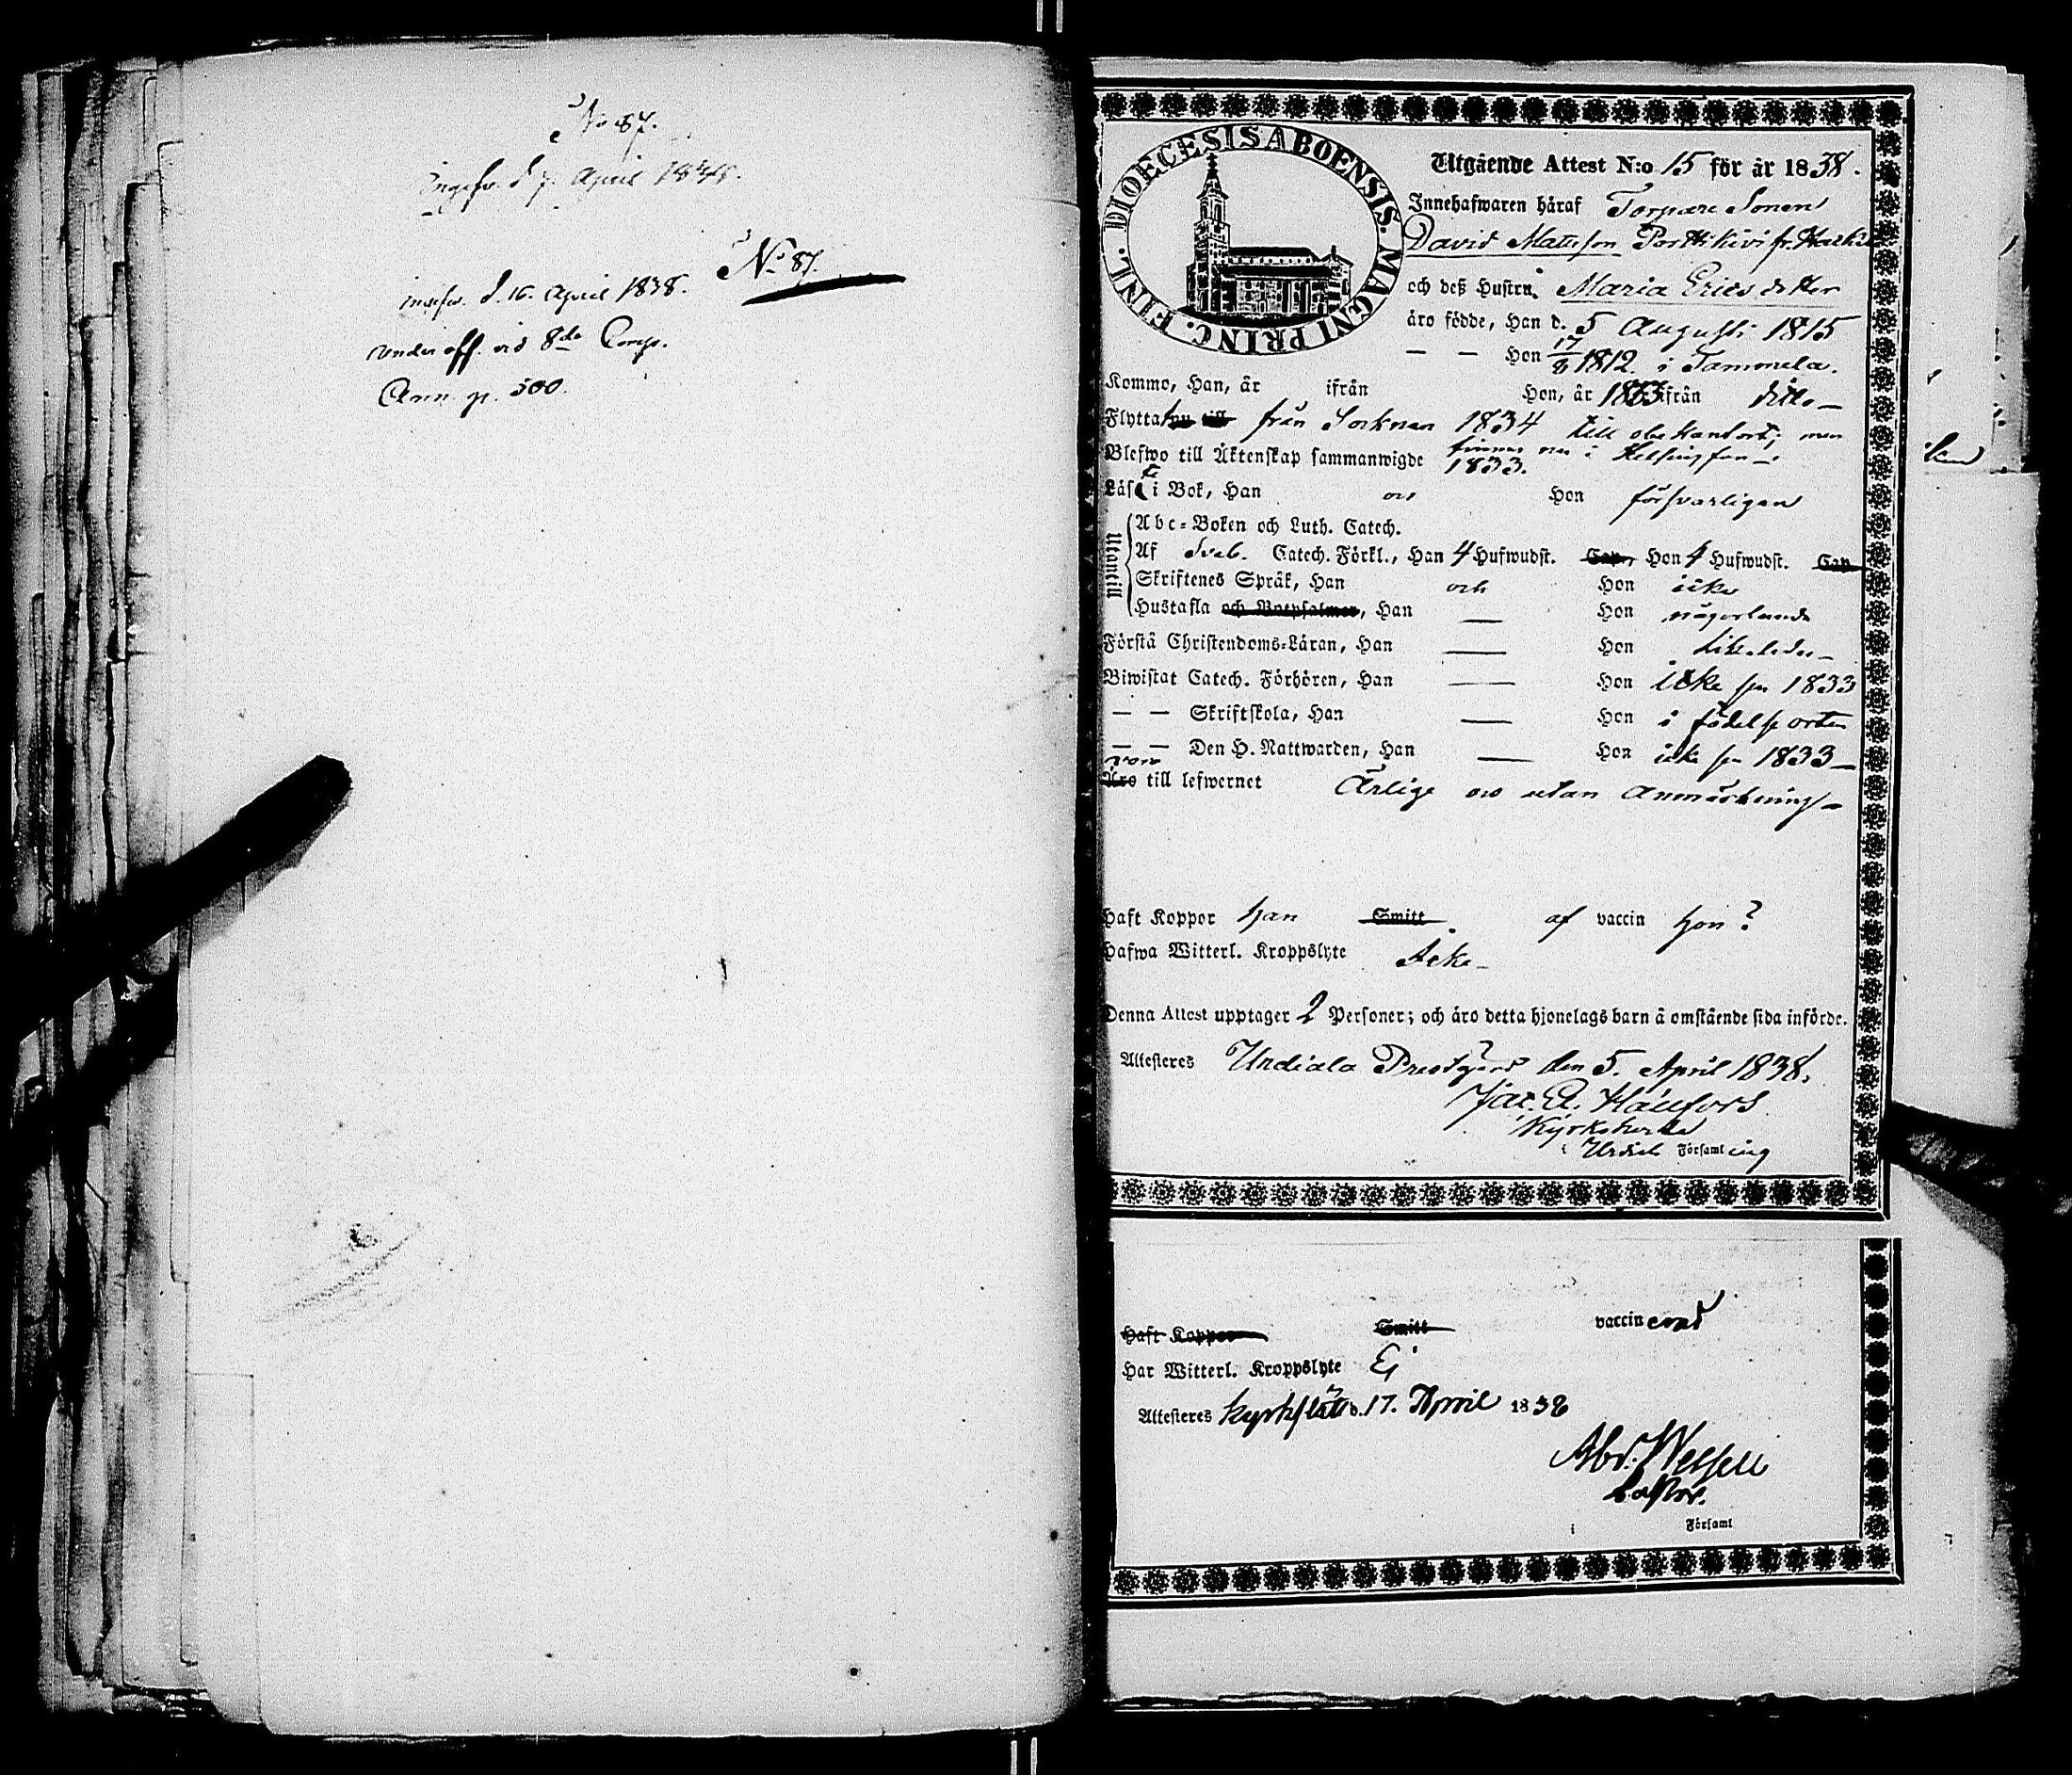 No 87.
d 7. April 1838.
No 87.
d. 16. April 1838.
under off. vid 8de Corps.
Ann. p. 500.
DIOECESIS ABOENSIS. MAGNI PRINC. FINL.
Utgående Attest N:o 15 för år 1838.
Innehafwaren håraf Torpare Sonen
David Matsson Porttikivi fr.
och deß Hustru, Maria Ericsdotter
äro födde, Han d. 5 Augusti 1815
— — Hon 17/8 1812. i Tammela.
Kommo, Han, år ifrån Hon, år 1833 ifrån ditto —
Flytta från Socknen 1834 till obekant ort; men
finnes nu i Helsingfors —
Blefwo till Äktenskap sammanwigde 1833.
Läsa i Bok, Han och Hon försvarligen
Utantill
Abc-Boken och Luth. Catech.
Af Sveb. Catech. Förkl., Han 4 Hufwudst. Cap., Hon 4 Hufwudst. Cap
Skriftenes Språk, Han och Hon icke
Hustafla och Botpsalmer, Han — Hon någorlunda
Förstå Christendoms-Läran, Han — Hon likaledes —
Biwistat Catech. Förhören, Han — Hon icke sen 1833
— — Skriftskola, Han — Hon i födelse orten
— — Den H. Nattwarden, Han — Hon icke sen 1833 —
voro
Äro till lefwernet Ärlige och utan Anmärkning —
Haft Koppor Han Smitt af vaccin Hon?
Hafwa Witterl. Kroppslyte Icke —
Denna Attest upptager 2 Personer; och äro detta hjonelags barn å omstående sida införde.
Attesteres Urdiala Prestgård den 5. April 1838.
Jac. A. Hällfors
Kyrkoherde
i Urdiala Församling
Haft Koppor Smitt vaccinerad
Har Witterl. Kroppslyte Ej
Attesteres Kyrkslätt d. 17. April 1838
Abr. Wessell
Pastor.
i Församl